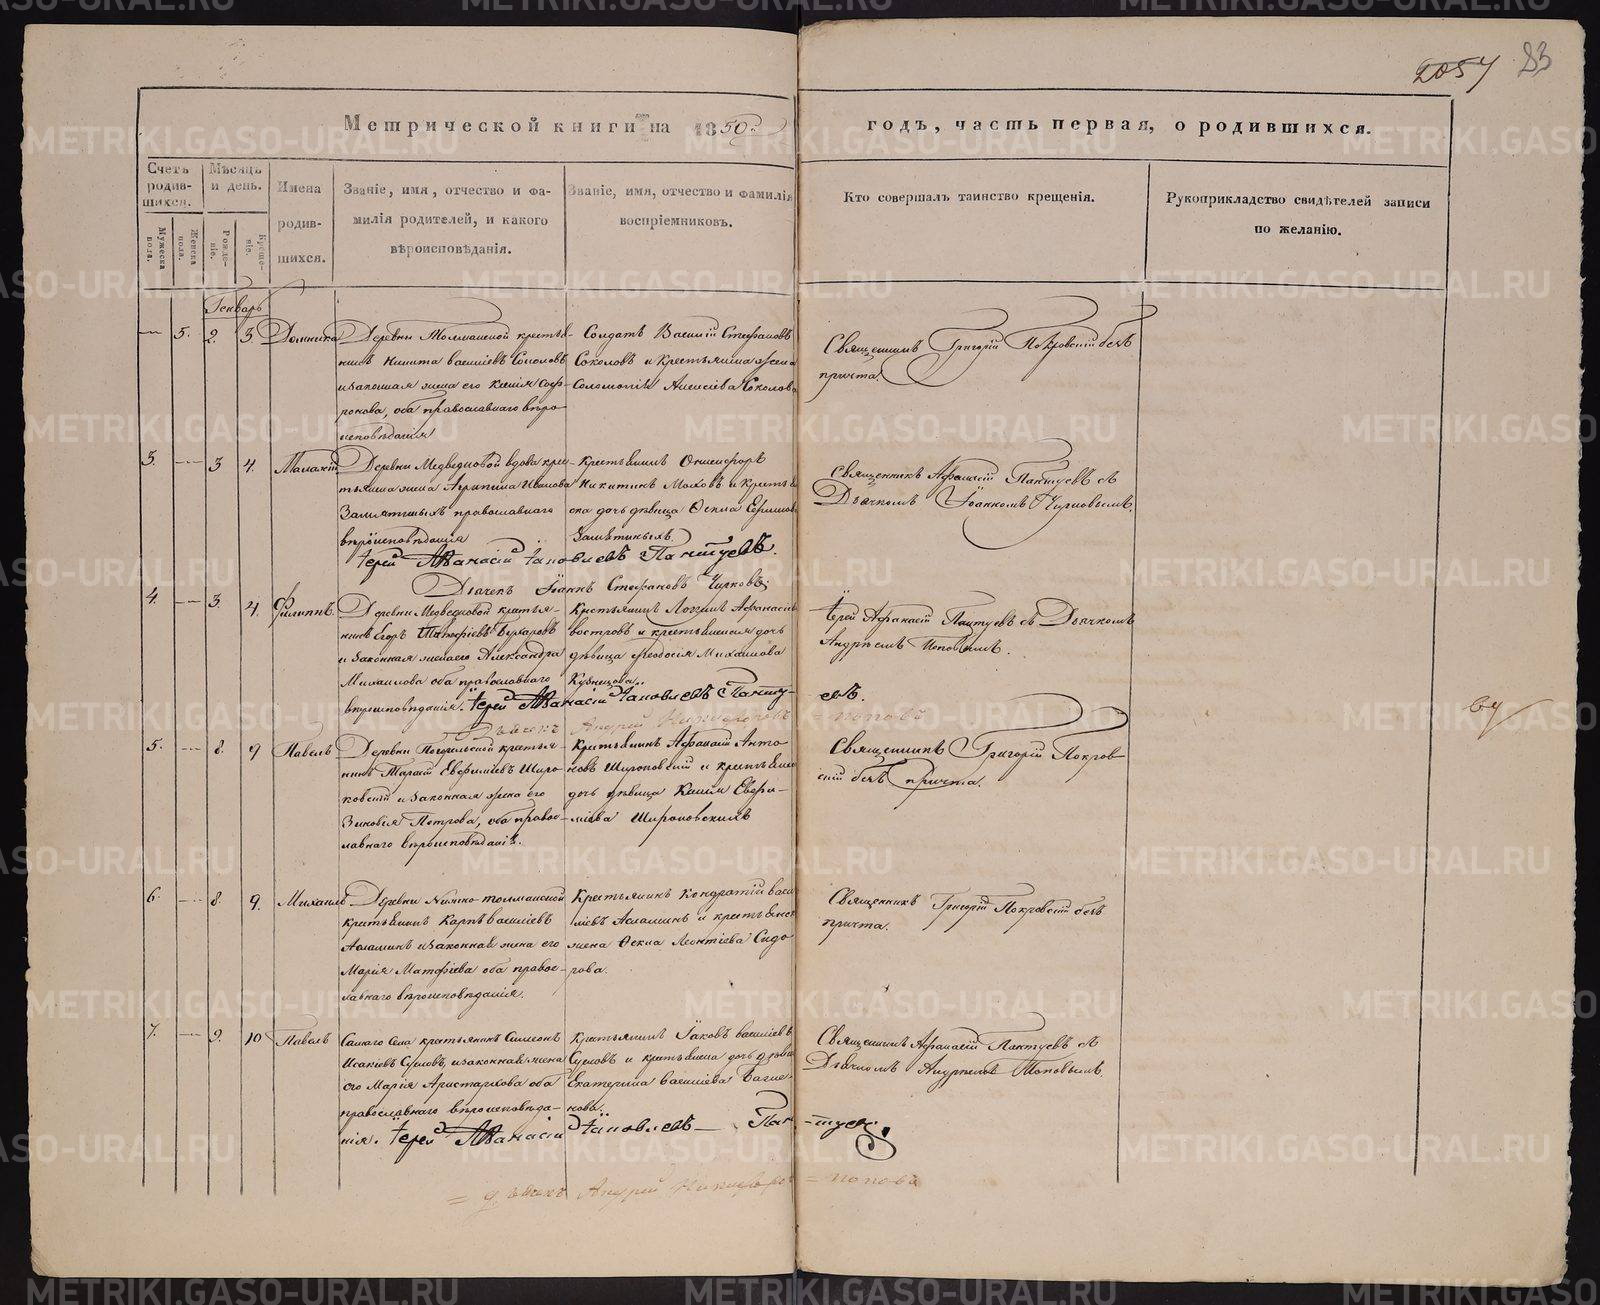 2057 83
Метрической книги на 1850 годъ, часть первая, о родившихся.
Счетъ родившихся.
Мужеска пола.
Женска пола.
Мѣсяцъ и день.
Рожденіе.
Крещеніе.
Имена родившихся.
Званіе, имя, отчество и фамилія родителей, и какого вѣроисповѣданія.
Званіе, имя, отчество и фамилія воспріемниковъ.
Кто совершалъ таинство крещенія.
Рукоприкладство свидѣтелей записи по желанію.
Генварь
— 5. 2. 3 Домника
Деревни Толмацкой крестья-
нинъ Никита Василіевъ Соколовъ
и законная жена его Ксенія Соф-
ронова, оба православнаго вѣро-
исповѣданія
Солдатъ Василій Стефановъ
Соколовъ и Крестьянина жена
Соломонія Алексіева Соколова
Священникъ Григорій Покровскій безъ
причта.
3. — 3 4. Малахій
Деревни Медведковой вдова крес-
тьянина жена Агрипина Иванова
православнаго
вѣроисповѣданія
Крестьянинъ Онисифоръ
Никитинъ Моховъ и Крестья
дочь дѣвица Ѳекла
Священникъ Афанасій Пантуевъ съ
Дьячкомъ Іоанномъ Чирковымъ.
Іерей Аѳанасій Іаковлевъ Пантуевъ.
Дьячекъ Іоаннъ Стефановъ Чирковъ
4. — 3. 4. Филиппъ.
Деревни Медведковой крестья-
нинъ Егоръ Матѳіевъ Бухаровъ
и законная жена его Александра
Михаилова оба православнаго
вѣроисповѣданія.
Крестьянинъ Логинъ Афанасіевъ
Востровъ и крестьянская дочь
дѣвица Ѳеодосія Михаилова
Кузнецова.
Іерей Афанасій Пантуевъ съ Дьячкомъ
Андреемъ Поповымъ.
Іерей Аѳанасій Іаковлевъ Панту-
евъ.
Дьячекъ Андрей Никифоровъ = Поповъ
5. — 8. 9 Павелъ
крестья-
нинъ Тарасій Евфиміевъ Широ-
ковскій и законная жена его
Зиновія Петрова, оба право-
славнаго вѣроисповѣданія.
Крестьянинъ Афанасій Анто
новъ Широковскій и крестьянина
дочь дѣвица Евфи-
міева Широковскихъ
Священникъ Григорій Покров
скій безъ причта.
6. — 8. 9. Михаилъ
Деревни Нижно-толмацкой
крестьянинъ Карпъ Василіевъ
Асламинъ и законная жена его
Марія Матфіева оба право-
славнаго вѣроисповѣданія.
Крестьянинъ Кондратій Васи
ліевъ Асламинъ и крестьянск
жена Ѳекла Леонтіева Сидо
рова.
Священникъ Григорій Покровскій безъ
причта.
7. — 9. 10 Павелъ
Самаго Села крестьянинъ Симеонъ
Исаковъ Сусловъ, и законная жена
его Марія Аристархова оба
православнаго вѣроисповѣда-
нія.
Крестьянинъ Іаковъ Василіевъ
Сусловъ и крестьянина дочь дѣвица
Екатерина Василіева
нова.
Священникъ Афанасій Пантуевъ съ
Дьячкомъ Андреемъ Поповымъ.
Іерей Аѳанасій Іаковлевъ — Пан-
-туевъ.
= Дьячекъ Андрей Никифоровъ = Поповъ
METRIKI.GASO-URAL.RU